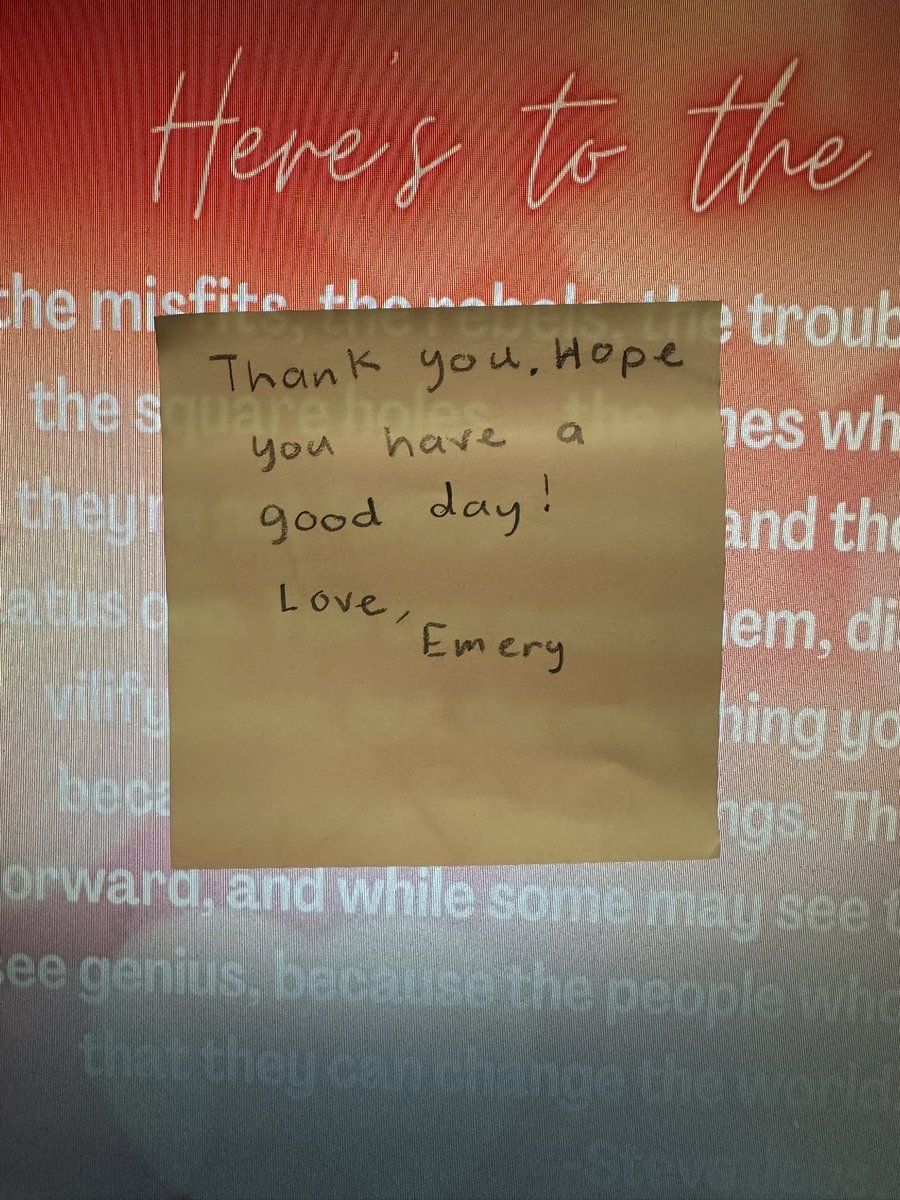 Here's to the
the misfits, the rebels, the troub
the square holes the ones wh
they'r and the
atus q em, di
vilify hing yo
beca ngs. Th
orward, and while some may see t
see genius, because the people who
that they can change the world
Thank you. Hope
you have a
good day!
Love,
Emery